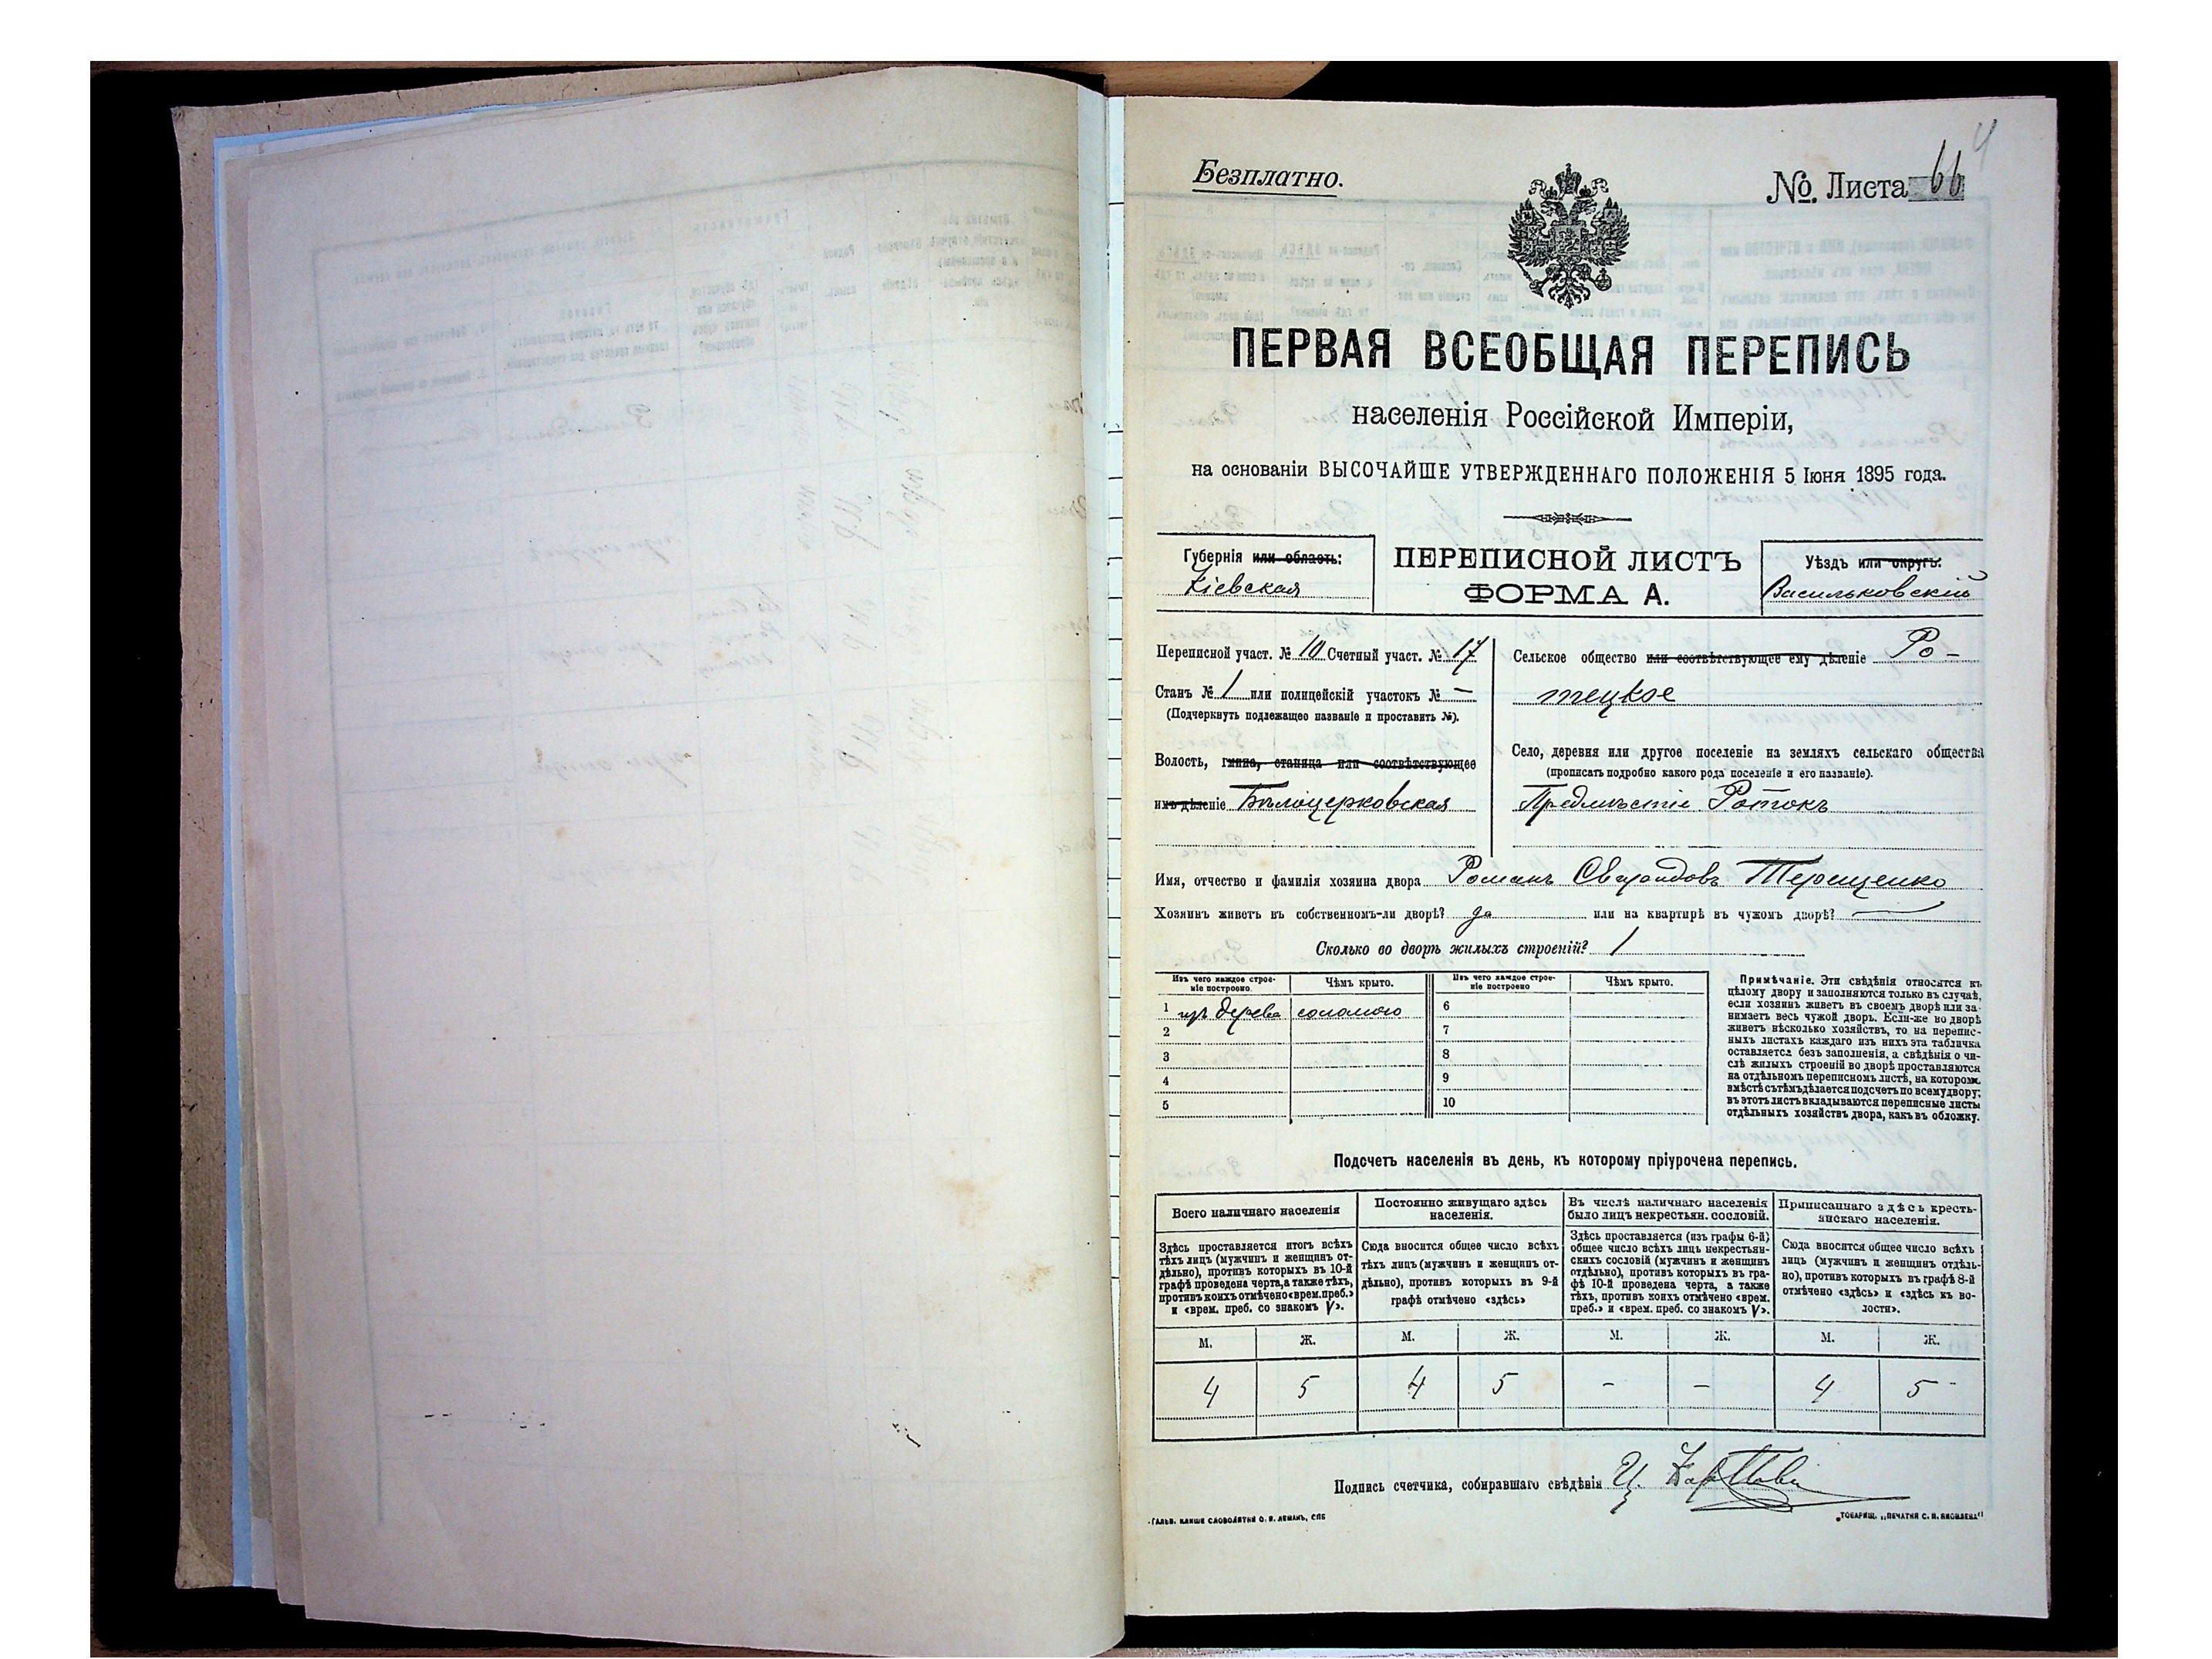 4
Безплатно.
№. Листа 66
ПЕРВАЯ ВСЕОБЩАЯ ПЕРЕПИСЬ
населенія Россійской Имперіи,
на основаніи ВЫСОЧАЙШЕ УТВЕРЖДЕННАГО ПОЛОЖЕНІЯ 5 Іюня 1895 года.
Губернія или область:
Кіевская
ПЕРЕПИСНОЙ ЛИСТЪ
ФОРМА А.
Уѣздъ или округъ:
Васильковскій
Переписной участ. № 10 Счетный участ. № 17
Станъ № 1 или полицейскій участокъ № —
(Подчеркнуть подлежащее названіе и проставить №).
Волость, гмина, станица или соотвѣтствующее
имъ дѣленіе Бѣлоцерковская
Сельское общество или соотвѣтствующее ему дѣленіе Ро-
тецкое
Село, деревня или другое поселеніе на земляхъ сельскаго общества
(прописать подробно какого рода поселеніе и его названіе).
Предмѣстіе Ротокъ
Имя, отчество и фамилія хозяина двора Романъ Терещенко
Хозяинъ живетъ въ собственномъ-ли дворѣ? да или на квартирѣ въ чужомъ дворѣ? —
Сколько во дворѣ жилыхъ строеній? 1
Изъ чего каждое строе-
ніе построено.
Чѣмъ крыто.
Изъ чего каждое строе-
ніе построено
Чѣмъ крыто.
1 изъ дерева соломою 6
2 7
3 8
4 9
5 10
Примѣчаніе. Эти свѣдѣнія относятся къ
цѣлому двору и заполняются только въ случаѣ,
если хозяинъ живетъ въ своемъ дворѣ или за-
нимаетъ весь чужой дворъ. Если-же во дворѣ
живетъ нѣсколько хозяйствъ, то на перепис-
ныхъ листахъ каждаго изъ нихъ эта табличка
оставляется безъ заполненія, а свѣдѣнія о чи-
слѣ жилыхъ строеній во дворѣ проставляются
на отдѣльномъ переписномъ листѣ, на которомъ
вмѣстѣ съ тѣмъ дѣлается подсчетъ по всему двору;
въ этотъ листъ вкладываются переписные листы
отдѣльныхъ хозяйствъ двора, какъ въ обложку.
Подсчетъ населенія въ день, къ которому пріурочена перепись.
Всего наличнаго населенія
Здѣсь проставляется итогъ всѣхъ
тѣхъ лицъ (мужчинъ и женщинъ от-
дѣльно), противъ которыхъ въ 10-й
графѣ проведена черта, а также тѣхъ,
противъ коихъ отмѣчено «врем. преб.»
и «врем. преб. со знакомъ V».
Постоянно живущаго здѣсь
населенія.
Сюда вносится общее число всѣхъ
тѣхъ лицъ (мужчинъ и женщинъ от-
дѣльно), противъ которыхъ въ 9-й
графѣ отмѣчено «здѣсь»
Въ числѣ наличнаго населенія
было лицъ некрестьян. сословій.
Здѣсь проставляется (изъ графы 6-й)
общее число всѣхъ лицъ некрестьян-
скихъ сословій (мужчинъ и женщинъ
отдѣльно), противъ которыхъ въ гра-
фѣ 10-й проведена черта, а также
тѣхъ, противъ коихъ отмѣчено «врем.
преб.» и «врем. преб. со знакомъ V».
Приписаннаго здѣсь кресть-
янскаго населенія.
Сюда вносится общее число всѣхъ
лицъ (мужчинъ и женщинъ отдѣль-
но), противъ которыхъ въ графѣ 8-й
отмѣчено «здѣсь» и «здѣсь къ во-
лости».
М. Ж. М. Ж. М. Ж. М. Ж.
4 5 4 5 - - 4 5
Подпись счетчика, собиравшаго свѣдѣнія
ГАЛЬВ. КЛИШЕ СЛОВОЛИТНИ О. И. ЛЕМАНЪ, СПБ
ТОВАРИЩ. „ПЕЧАТНЯ С. П. ЯКОВЛЕВА"